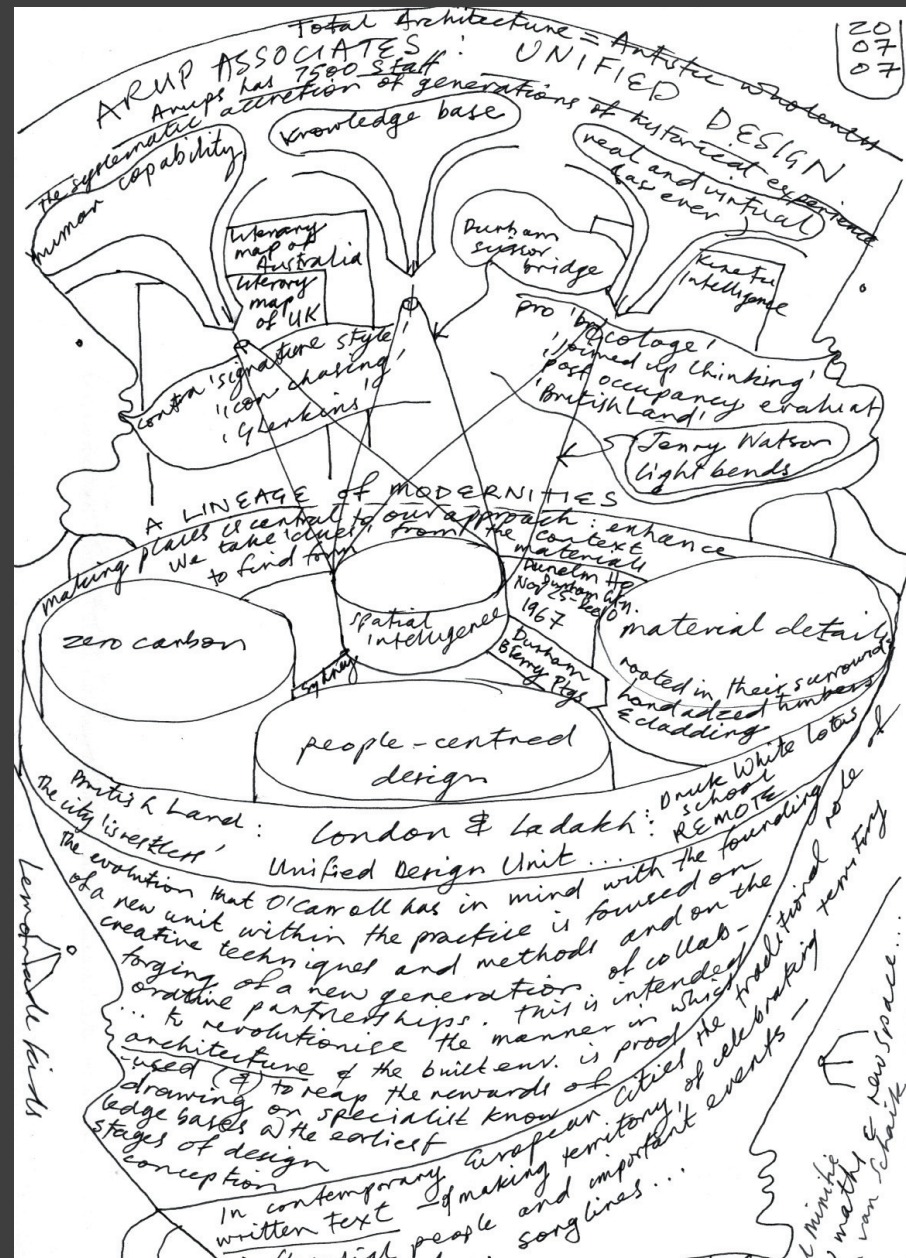 Total Architecture = Artistic wholeness
20
07
07
ARUP ASSOCIATES: UNIFIED DESIGN
Arups has 7500 Staff
the systematic accretion of generations of historical experience
human capability
knowledge base
real and virtual
as ever
Literary
map of
Australia
Literary
map
of UK
Durham
bridge
Kinetic
Intelligence
contra 'signature style'
'icon chasing'
'Gherkins'
pro 'bricolage'
'joined up thinking'
post occupancy evaluat
'British Land'
Jenny Watson
light bends
A LINEAGE of MODERNITIES
making places is central to our approach: enhance
We take 'clues' from the context
to find form
materials
Dunelm Ho
Durham
Nov 25-Dec 10
1967
zero carbon
spatial
intelligence
material detail
rooted in their surround
hand adzed timbers
& cladding
Sydney
Durham
Berry Ptgs
people-centred
design
British Land:
The city 'is restless'
London & Ladakh:
Druk White Lotus
school
REMOTE
Unified Design Unit ...
The evolution that O'Carroll has in mind with the founding
of a new unit within the practice is focused on
creative techniques and methods and on the
forging of a new generation of collab-
orative partnerships. This is intended
... to revolutionise the manner in which
architecture & the built env. is prod
-used (&) to reap the rewards of
drawing on specialist know
ledge bases @ the earliest
stages of design
conception
In contemporary European Cities the traditional role of
written text - of making territory, of celebrating territory
people and important events -
songlines...
Lemonade kids
maths & new space...
van Schaik